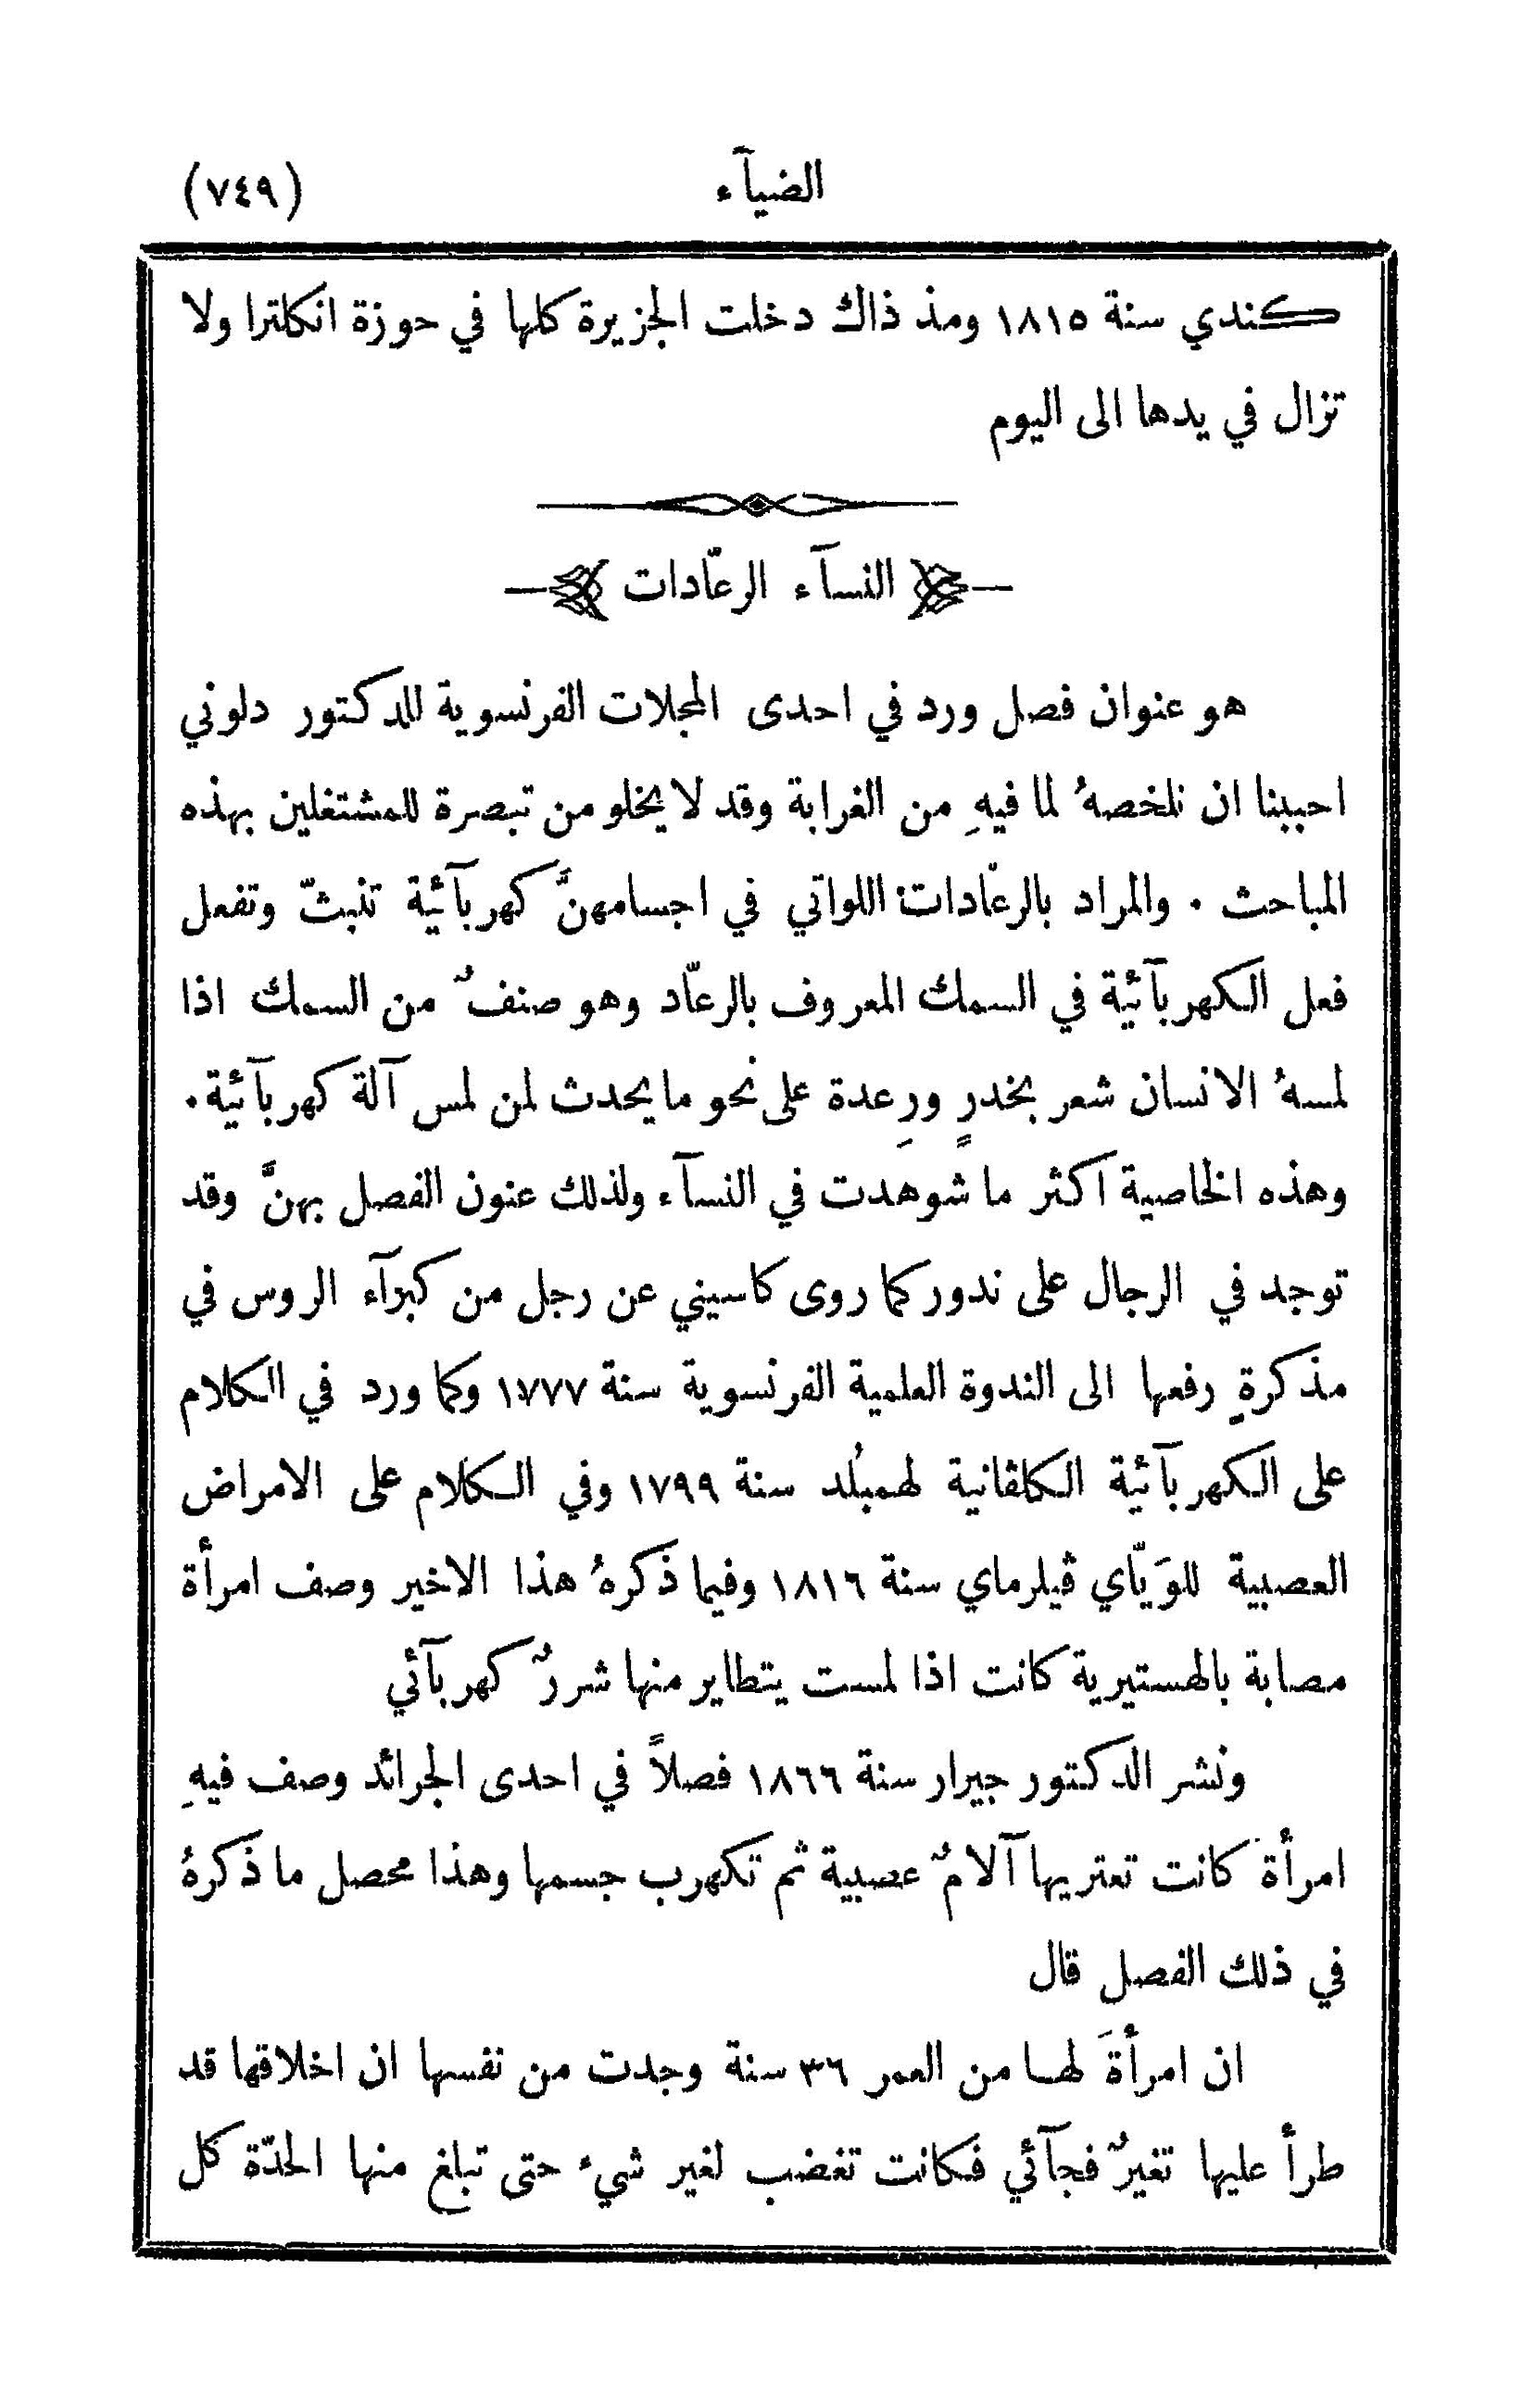 الضيآء (٧٤٩)
كندي سنة ١٨١٥ ومذ ذاك دخلت الجزيرة كلها في حوزة انكلترا ولا
تزال في يدها الى اليوم
النسآء الرعّادات
هو عنوان فصل ورد في احدى المجلات الفرنسوية للدكتور دلوني
احببنا ان نلخصهُ لما فيهِ من الغرابة وقد لا يخلو من تبصرة للمشتغلين بهذه
المباحث . والمراد بالرعّادات اللواتي في اجسامهنَّ كهربآئية تنبثّ وتفعل
فعل الكهربآئية في السمك المعروف بالرعّاد وهو صنفٌ من السمك اذا
لمسهُ الانسان شعر بخدرٍ ورِعدة على نحو ما يحدث لمن لمس آلة كهربآئية .
وهذه الخاصية اكثر ما شوهدت في النسآء ولذلك عنون الفصل بهنَّ وقد
توجد في الرجال على ندور كما روى كاسيني عن رجل من كبرآء الروس في
مذكرةٍ رفعها الى الندوة العلمية الفرنسوية سنة ١٧٧٧ وكما ورد في الكلام
على الكهربآئية الكلڤانية لهمبُلد سنة ١٧٩٩ وفي الكلام على الامراض
العصبية للوَيّاي ڤيلرماي سنة ١٨١٦ وفيما ذكرهُ هذا الاخير وصف امرأة
مصابة بالهستيرية كانت اذا لمست يتطاير منها شررٌ كهربآئي
ونشر الدكتور جيرار سنة ١٨٦٦ فصلاً في احدى الجرائد وصف فيهِ
امرأة كانت تعتريها آلامٌ عصبية ثم تكهرب جسمها وهذا محصل ما ذكرهُ
في ذلك الفصل قال
ان امرأةَ لها من العمر ٣٦ سنة وجدت من نفسها ان اخلاقها قد
طرأ عليها تغيرٌ فجآئي فكانت تغضب لغير شيء حتى تبلغ منها الحدّة كل